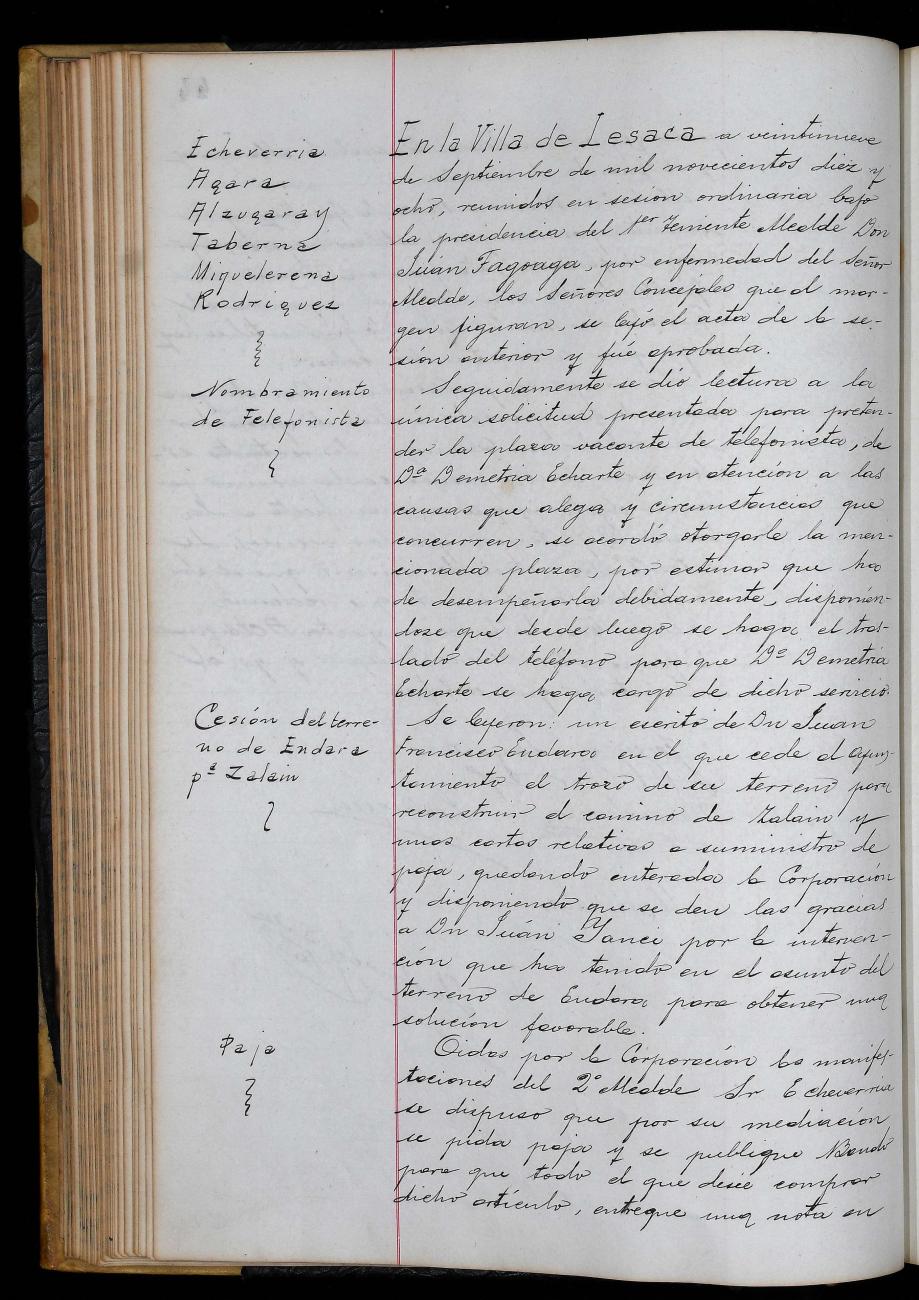 Echeverria
Agara
Alzugaray
Taberna
Miquelerena
Rodriguez
En la Villa de Lesaca a veintinueve
de Septiembre de mil novecientos diez y
ocho, reunidos en sesion ordinaria bajo
la presidencia del 1er Teniente Alcalde Don
Juán Fagoaga, por enfermedad del Señor
Alcalde, los Señores Concejales que al mar-
gen figuran, se leyó el acta de la se-
sión anterior y fué aprobada.
Nombramiento
de Telefonista
Seguidamente se dió lectura a la
única solicitud presentada para preten-
der la plaza vacante de telefonista, de
Dª Demetria Echarte y en atención a las
causas que alega y circunstancias que
concurren, se acordó otorgarle la men-
cionada plaza, por estimar que ha
de desempeñarla debidamente, disponien-
dose que desde luego se haga el tras-
lado del teléfono para que Dª Demetria
Echarte se haga cargo de dicho servicio.
Cesión del terre-
no de Endara
pª Zalain
Se leyeron: un escrito de Dn Juan
Francisco Endara en el que cede al Ayun-
tamiento el trozo de su terreno para
reconstruir el camino de Zalain y
unas cartas relativas a suministro de
paja, quedando enterada la Corporación
y disponiendo que se den las gracias
a Dn Juán Yanci por la interven-
ción que ha tenido en el asunto del
terreno de Endara para obtener una
solución favorable.
Paja
Oidas por la Corporación las manifes-
taciones del 2º Alcalde Sr Echeverria
se dispuso que por su mediación
se pida paja y se publique Bando
para que todo el que desee comprar
dicho artículo, entregue una nota en